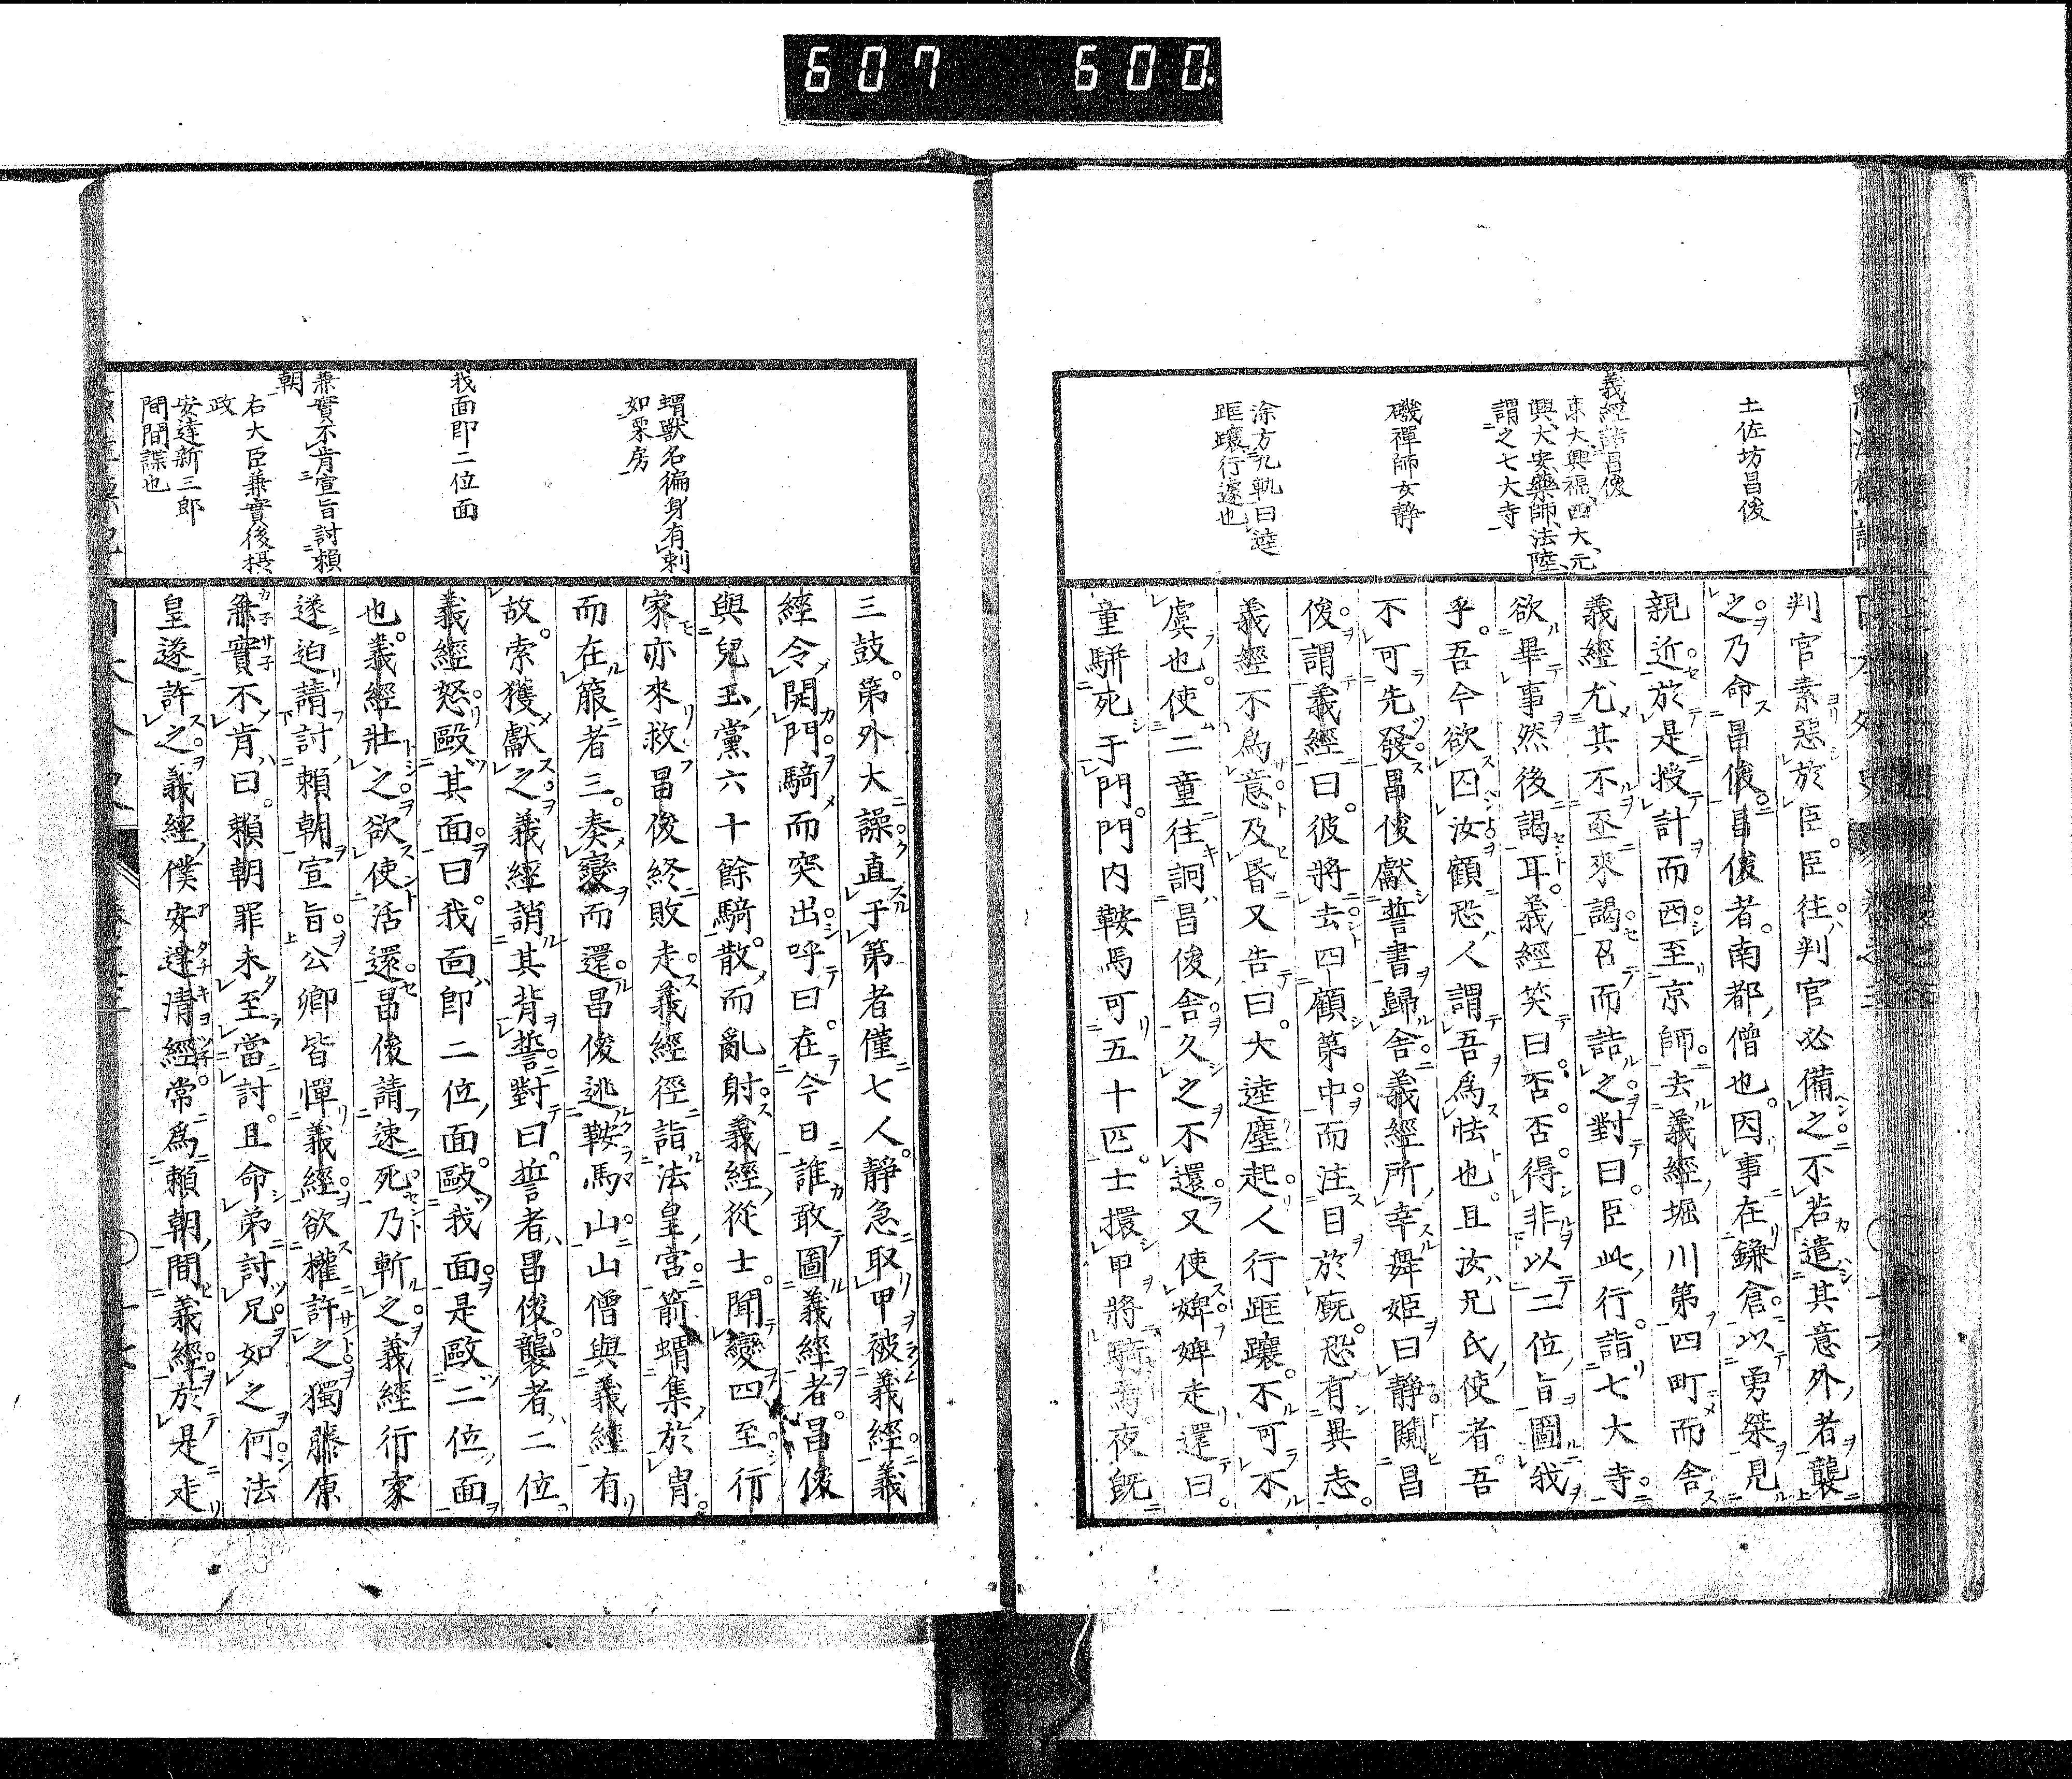 607 600
土佐坊昌俊
義經詰昌俊
東大、興福、四大、元
興、大安、藥師、法隆、
謂之七大寺
磯禪師女靜
涂方九軌曰逵
距躟行遽也
判官素惡於臣。臣往、判官必備之。不若遣其意外者襲
之。乃命昌俊。昌俊者。南都僧也。因事在鎌倉。以勇桀見
親近。於是授計而西。至京師。去義經堀川第四町而舍
義經尤其不亟來謁。召而詰之。對曰。臣此行。詣七大寺。
欲畢事然後謁耳。義經笑曰。否。否。得非以二位旨圖我
乎。吾今欲囚汝。顧恐人謂吾爲怯也。且汝兄氏使者。吾
不可先發。昌俊獻誓書歸舍。義經所幸舞姬曰靜。闚昌
俊。謂義經曰。彼將去。四顧第中。而注目於廐。恐有異志。
義經不爲意。及昏又告曰。大逵塵起。人行距躟。不可不
虞也。使二童往詗昌俊舍。久之不還。又使婢。婢走還曰。
童駢死于門。門内鞍馬可五十匹。士擐甲將騎焉。夜既
蝟獸名徧身有刺
如栗房
我面即二位面
兼實不肯宣旨討賴
朝
右大臣兼實後攝
政
安達新三郎
間間諜也
三鼓。第外大譟。直于第者僅七人。靜急取甲被義經。義
經令開門。騎而突出。呼曰。在今日誰敢圖義經者。昌俊
與兒玉黨六十餘騎。散而亂射。義經從士。聞變四至。行
家亦來救。昌俊終敗走。義經徑詣法皇宮。箭蝟集於冑。
而在箙者三。奏變而還。昌俊逃鞍馬山。山僧與義經有
故。索獲獻之。義經誚其背誓。對曰。誓者昌俊。襲者二位。
義經怒。毆其面曰。我面、即二位面。毆我面。是毆二位面
也。義經壯之。欲使活還。昌俊請速死。乃斬之。義經行家
遂迫請討賴朝宣旨。公卿皆憚義經。欲權許之。獨藤原
兼實不肯曰。賴朝罪未至當討。且命弟討兄。如之何。法
皇遂許之。義經僕安達清經。常爲賴朝間義經。於是走